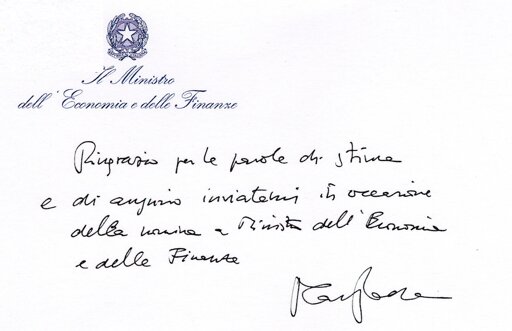 Il Ministro
dell'Economia e delle Finanze
Ringrazio per le parole di stima
e di augurio inviatemi in occasione
della nomina a Ministro dell'Economia
e delle Finanze